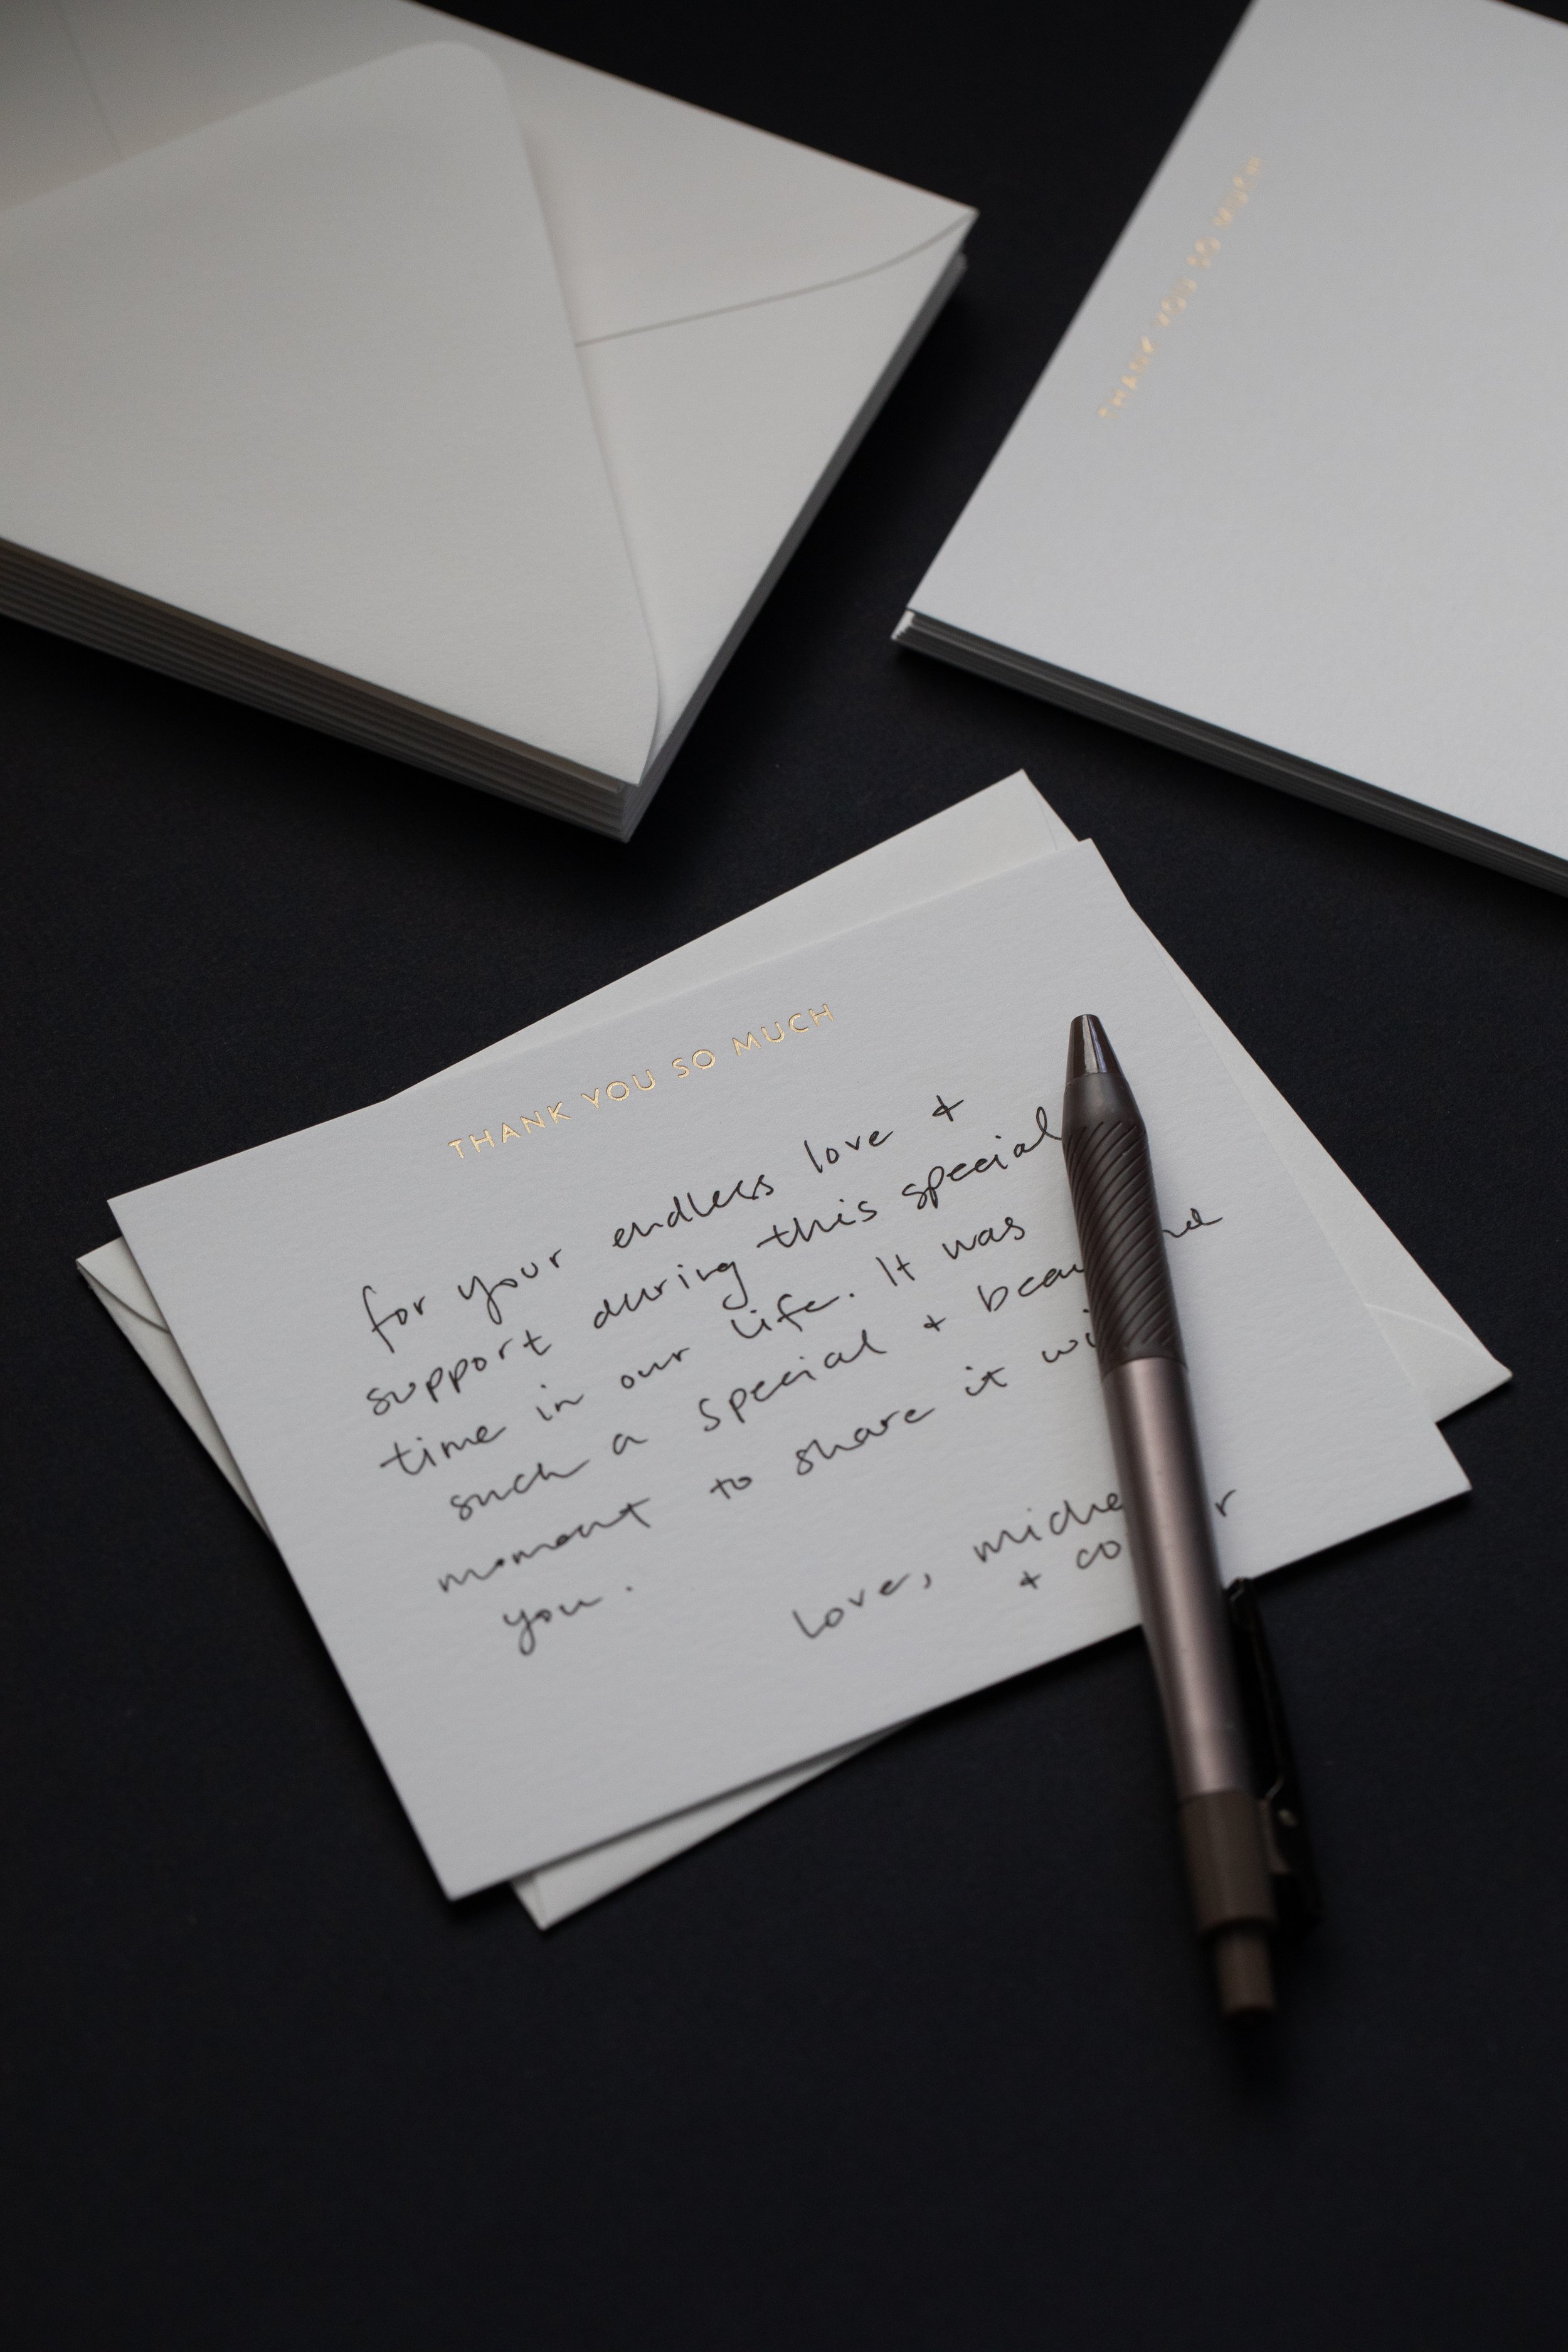 THANK YOU SO MUCH
THANK YOU SO MUCH
for your endless love +
support during this special
time in our life. It was
such a special +
moment to share it
you.
love,
+